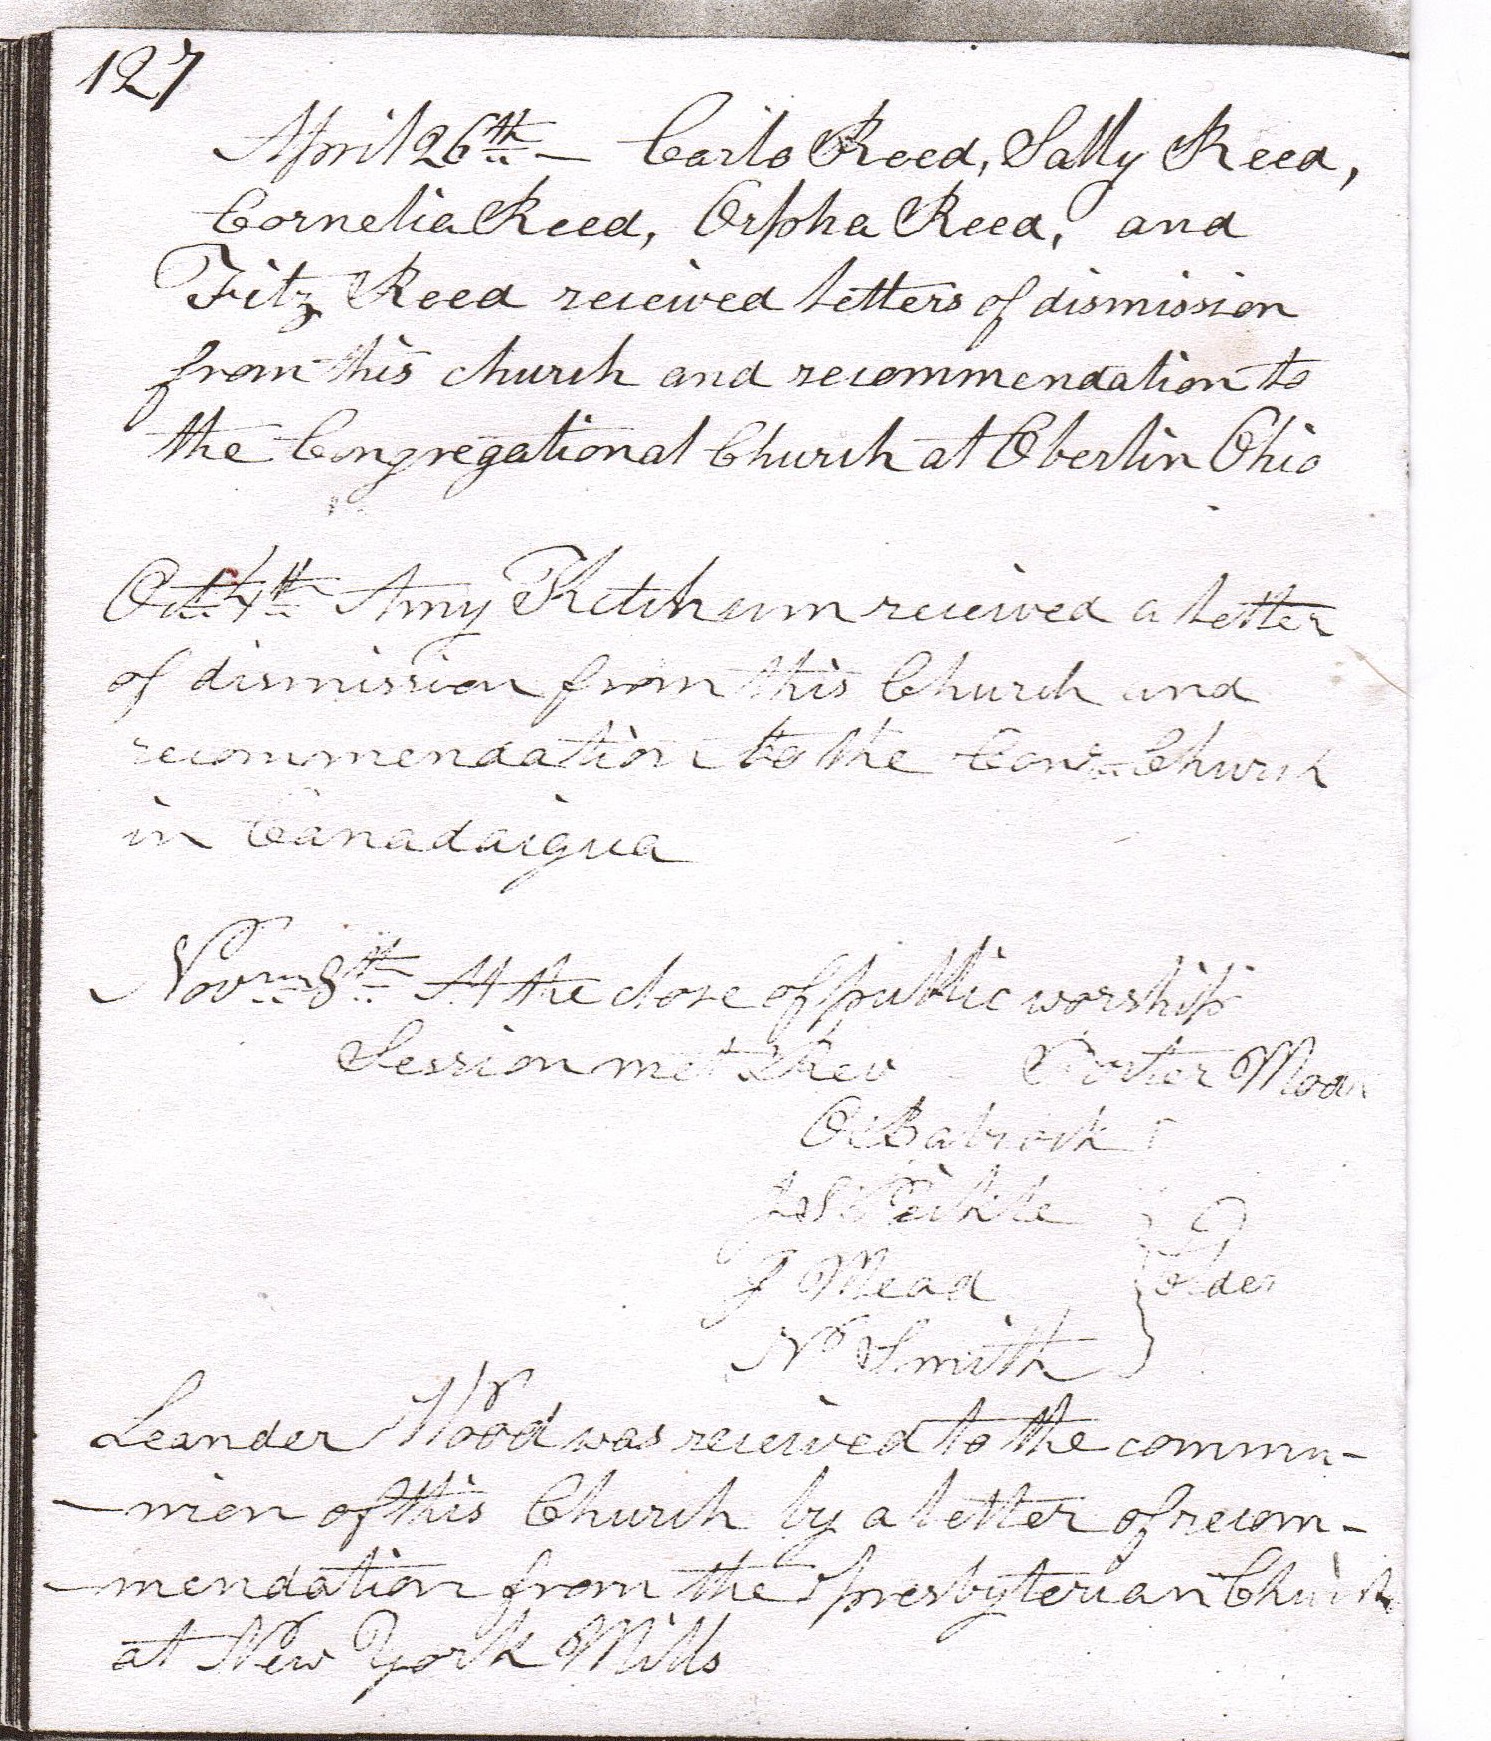 127
April 26th — Carlo Reed, Sally Reed,
Cornelia Reed, Orpha Reed, and
Fitz Reed received letters of dismission
from this church and recommendation to
the Congregational Church at Oberlin Ohio
Oct. 4th Amy Ketchum received a letter
of dismission from this Church and
recommendation to the Con. Church
in Canadaigua
Novm 8th At the close of public worship
Session met Rev Porter Moder
O. Babcock
J Mead
N Smith
Leander Wood was received to the commu-
-nion of this Church by a letter of recom-
-mendation from the Presbyterian Church
at New York Mills